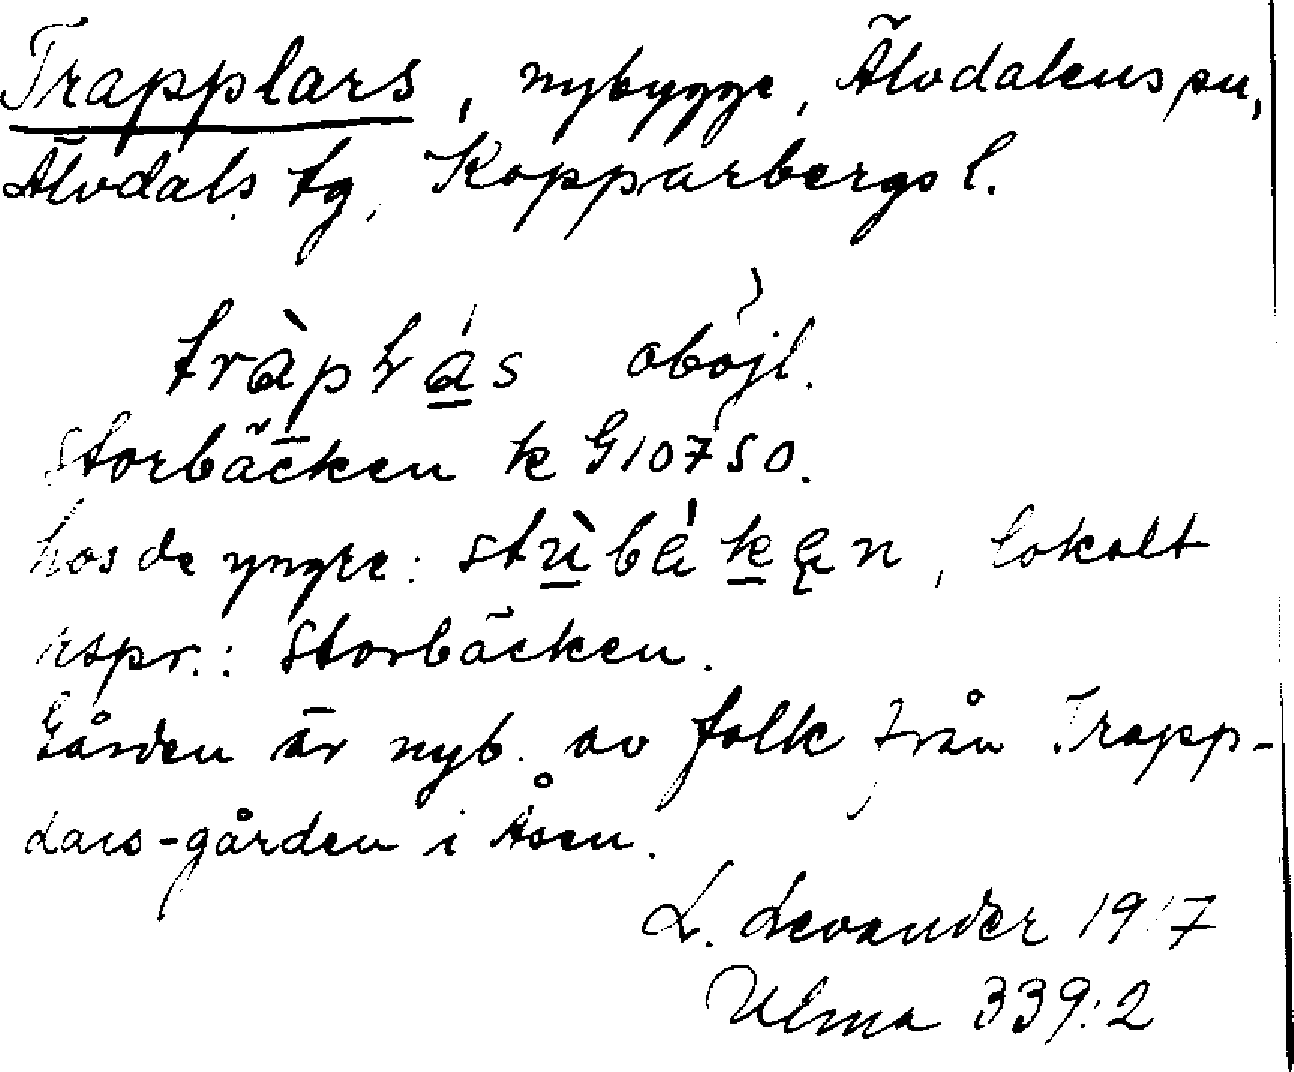 Trapplars, nybygge, Älvdalens sn,
Älvdals tg, Kopparbergs l.
tràplás oböjl.
Storbäcken k G10750.
hos de yngre: stùbäkęn, lokalt
rspr.: Storbäcken.
Gården är nyb. av folk från Trapp-
lars-gården i Åsen.
L. Levander 1917
Ulma 339:2